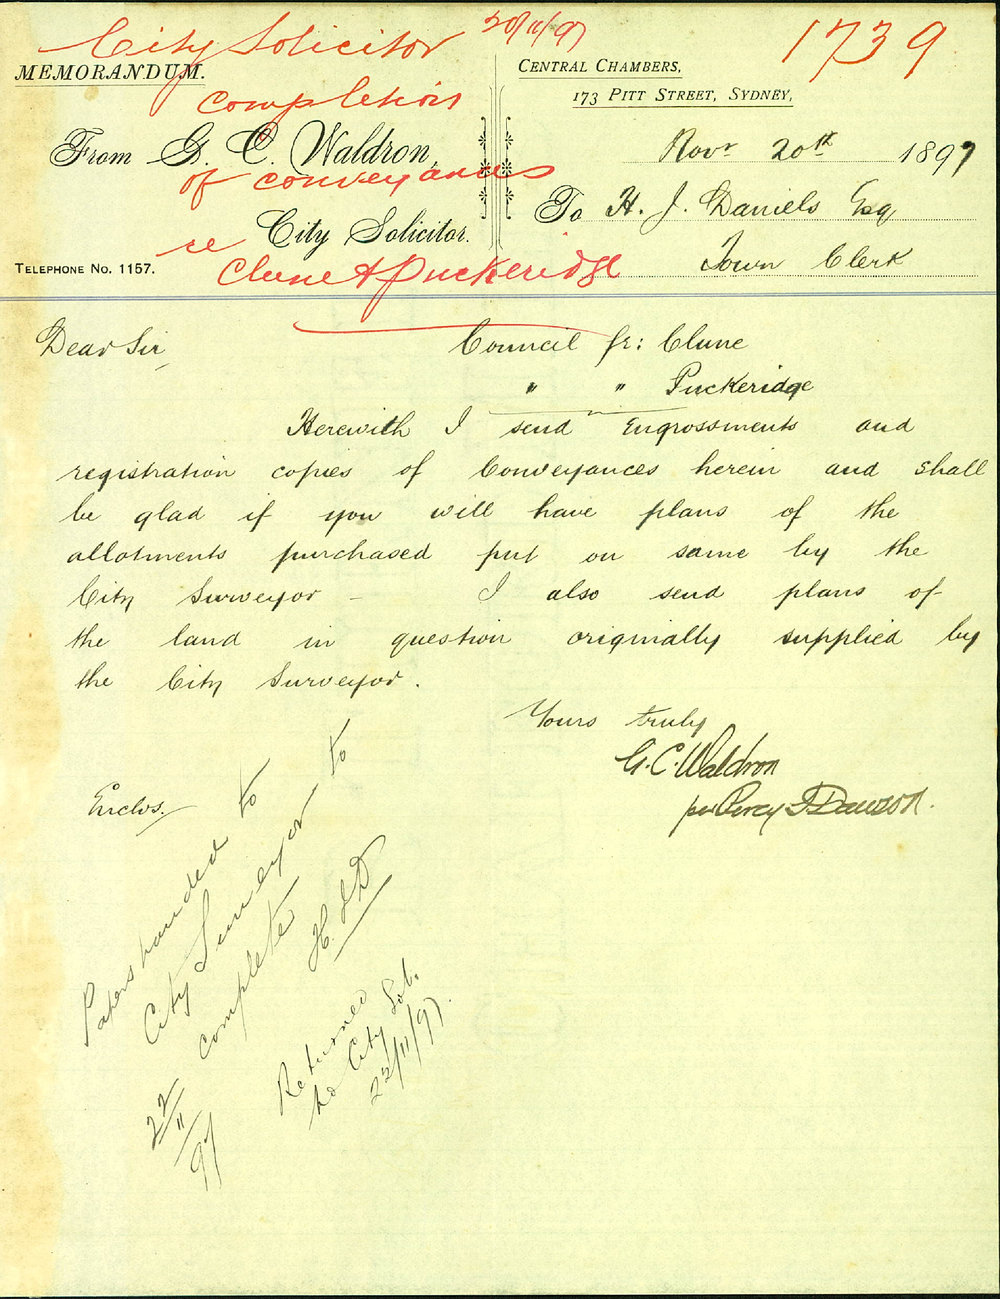 City Solicitor 20/11/97 1739
MEMORANDUM.
completion
CENTRAL CHAMBERS,
173 PITT STREET, SYDNEY,
From G. C. Waldron,
of conveyances
Novr 20th 1897
To H. J. Daniels Esq
City Solicitor.
re
Town Clerk
TELEPHONE No. 1157.
Clune & Puckeridge
Dear Sir,
Council fr: Clune
" " Puckeridge
Herewith I send Engrossments and
registration copies of Conveyances herein and shall
be glad if you will have plans of the
allotments purchased put on same by the
City Surveyor - I also send plans of
the land in question originally supplied by
the City Surveyor.
Yours truly
G. C. Waldron
per Percy J Dawson.
Enclos.
Papers handed to
City Surveyor to
complete
H.J.D
22/11/97
Returned
to City Sol.
22/11/97